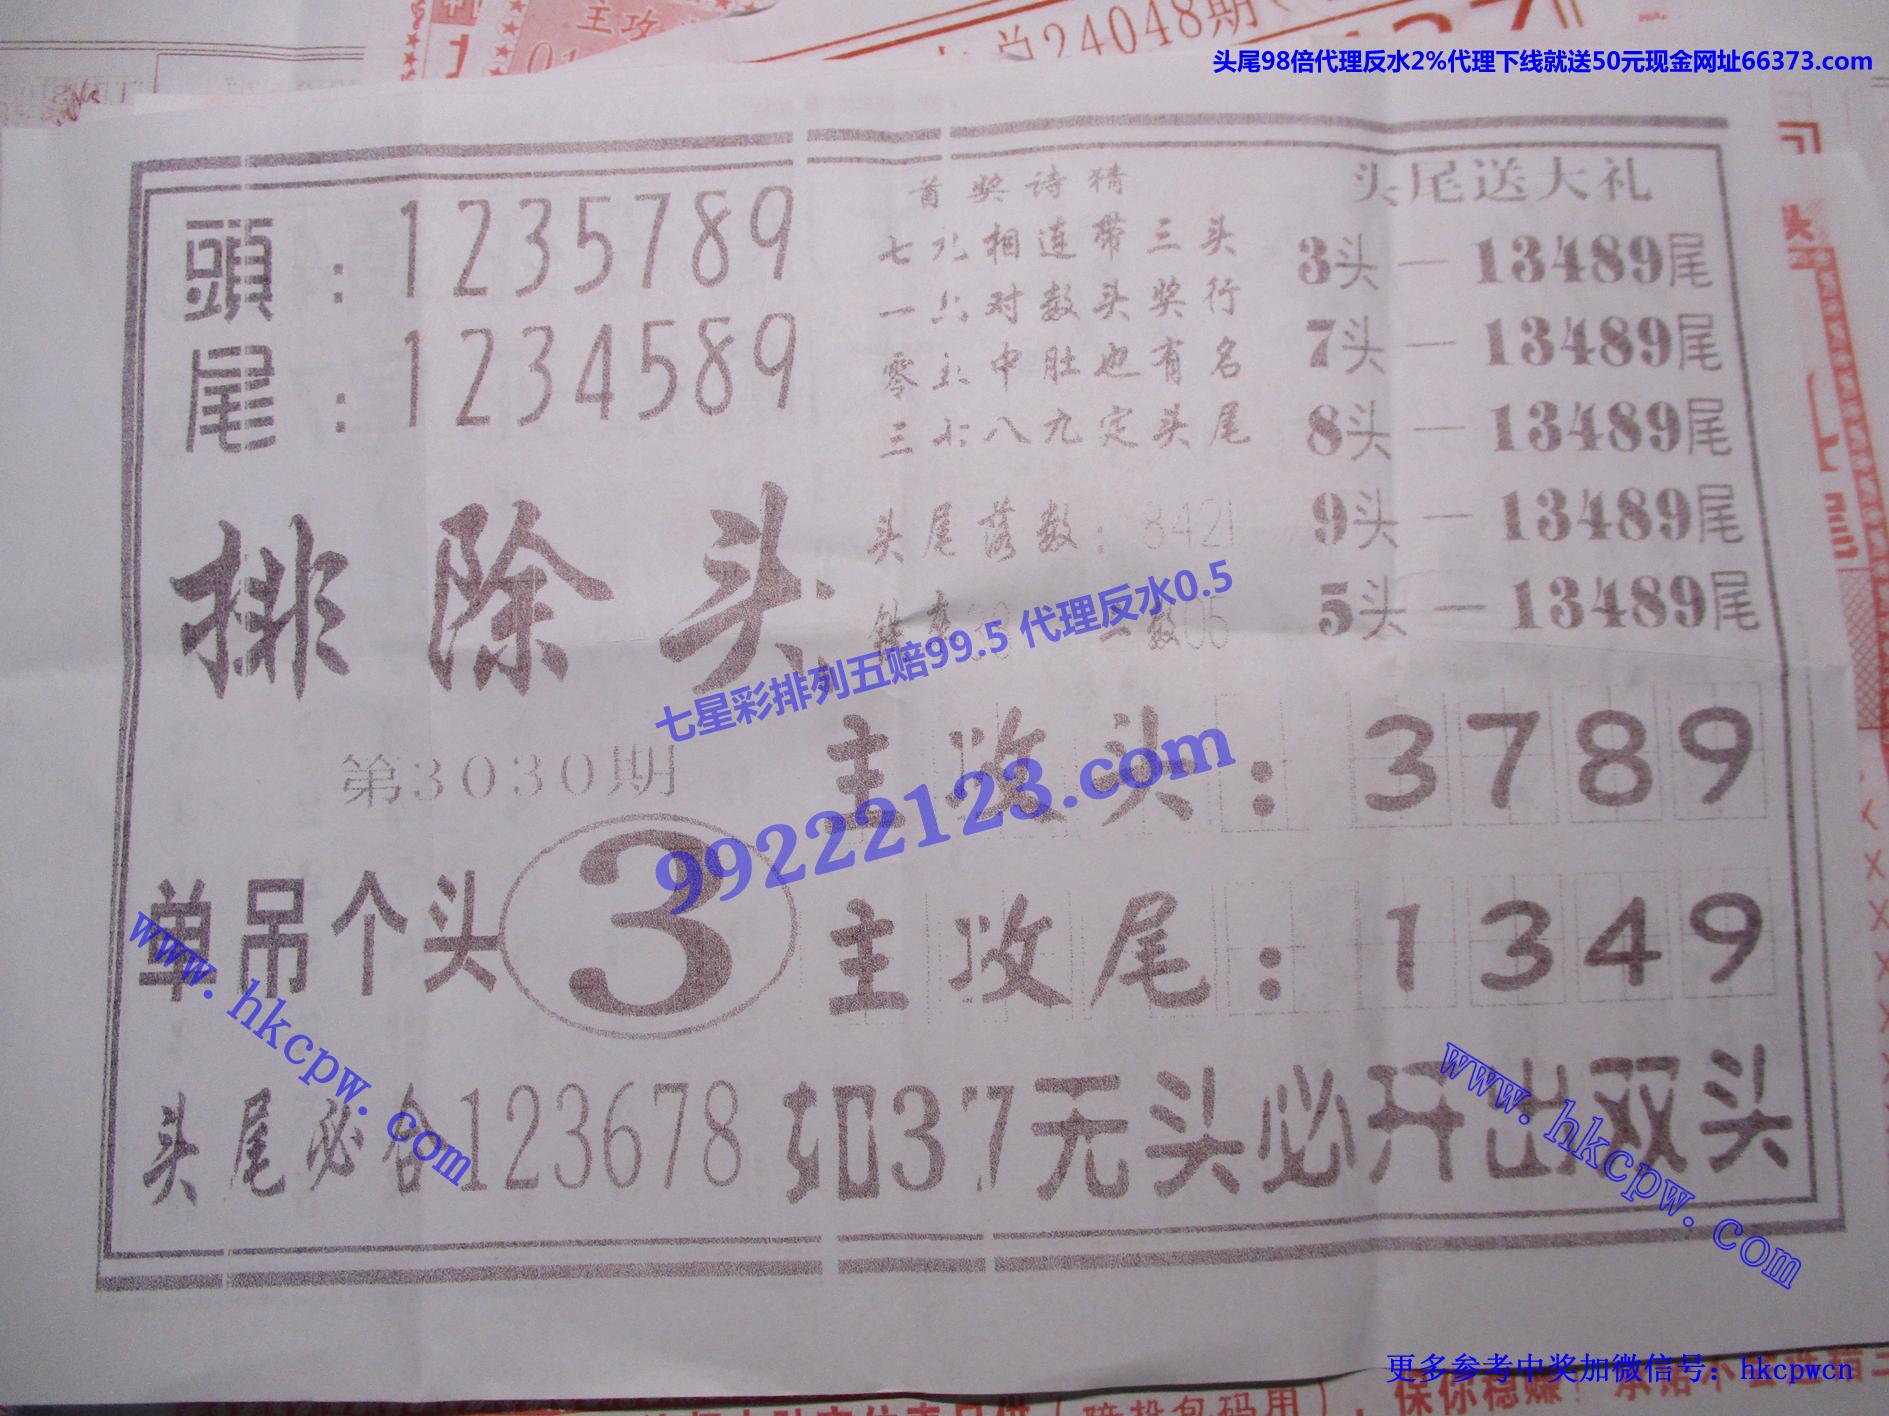 主攻
总24048期
头尾98倍代理反水2%代理下线就送50元现金网址66373.com
頭：1235789
尾：1234589
首奖诗猜
七九相连带三头
一六对数头奖行
零五中肚也有名
三七八九定头尾
头尾落数：8421
二数05
头尾送大礼
3头—13489尾
7头—13489尾
8头—13489尾
9头—13489尾
5头—13489尾
排除头
七星彩排列五赔99.5 代理反水0.5
99222123.com
第3030期
主攻头：3789
单吊个头3
主攻尾：1349
www.hkcpw.com
www.hkcpw.com
头尾必合123678 如3.7无头必开出双头
更多参考中奖加微信号：hkcpwcn
保你稳赚